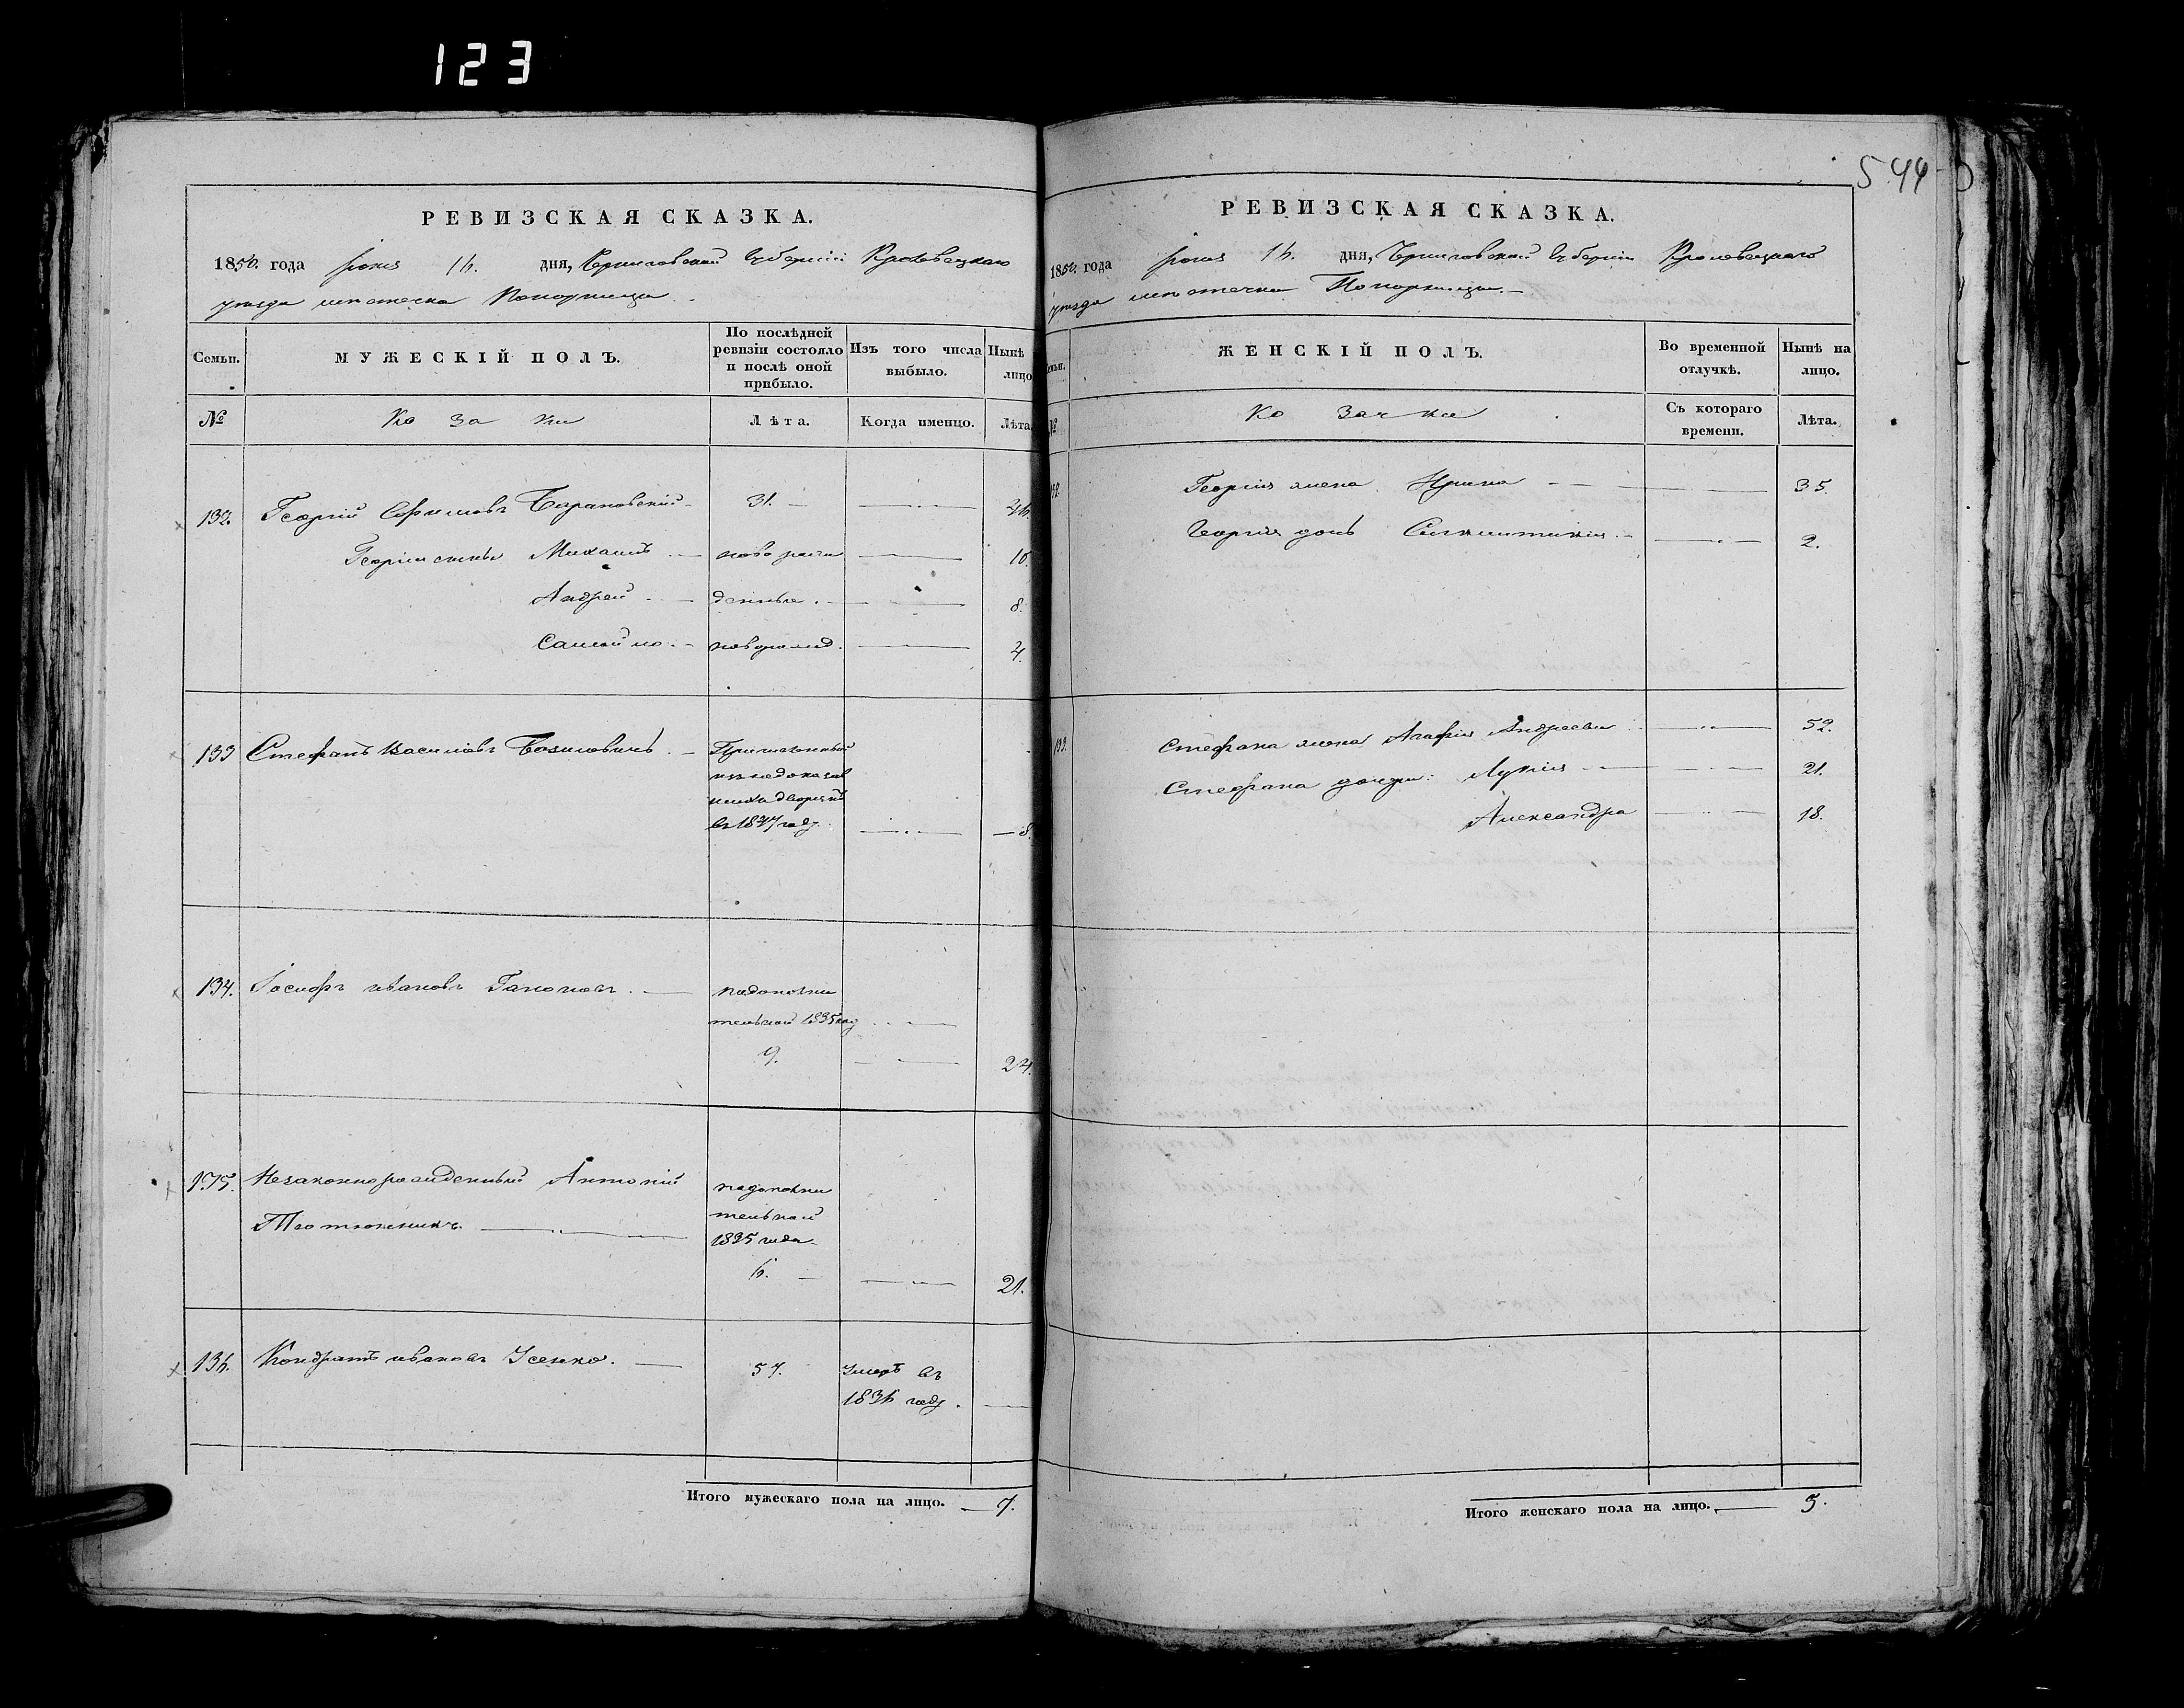 123
544
РЕВИЗСКАЯ СКАЗКА.
1850. года июня 16. дня, Черниговской Губерніи Кролевецкаго
уезда местечка Понорницы
Семьи.
МУЖЕСКІЙ ПОЛЪ.
По послѣдней ревизіи состояло и послѣ оной прибыло.
Изъ того числа выбыло.
Нынѣ лицо
№
Козаки
Лѣта.
Когда именно.
Лѣта.
132. Георгій Ефимовъ Барановскій 31. 46.
Георгія сыны Михаилъ ново рож 16.
Андрей денные. 8.
Самойло новорожд. 4.
133 Стефанъ Василіевъ
в 1847 году 8.
134. Іосифъ Ивановъ
по дополни
тельной 1835 году
9. 24.
135. Незаконнорожденный Антоній
по дополни
тельной
1835 года
6. 21.
136. Кондратъ Ивановъ Усенко. 57. Умеръ въ
1836 году.
Итого мужескаго пола на лицо. 7.
РЕВИЗСКАЯ СКАЗКА.
1850. года июня 16. дня, Черниговской Губерніи Кролевецкаго
уезда местечка Понорницы
Семьи.
ЖЕНСКІЙ ПОЛЪ.
Во временной отлучкѣ.
Нынѣ на лицо.
№
Козачки
Съ котораго времени.
Лѣта.
132. Георгія жена Ирина 35.
Георгія дочь 2.
133. Стефана жена Агафія Андреева 52.
Стефана дочери: Лукія 21.
Александра 18.
Итого женскаго пола на лицо. 5.